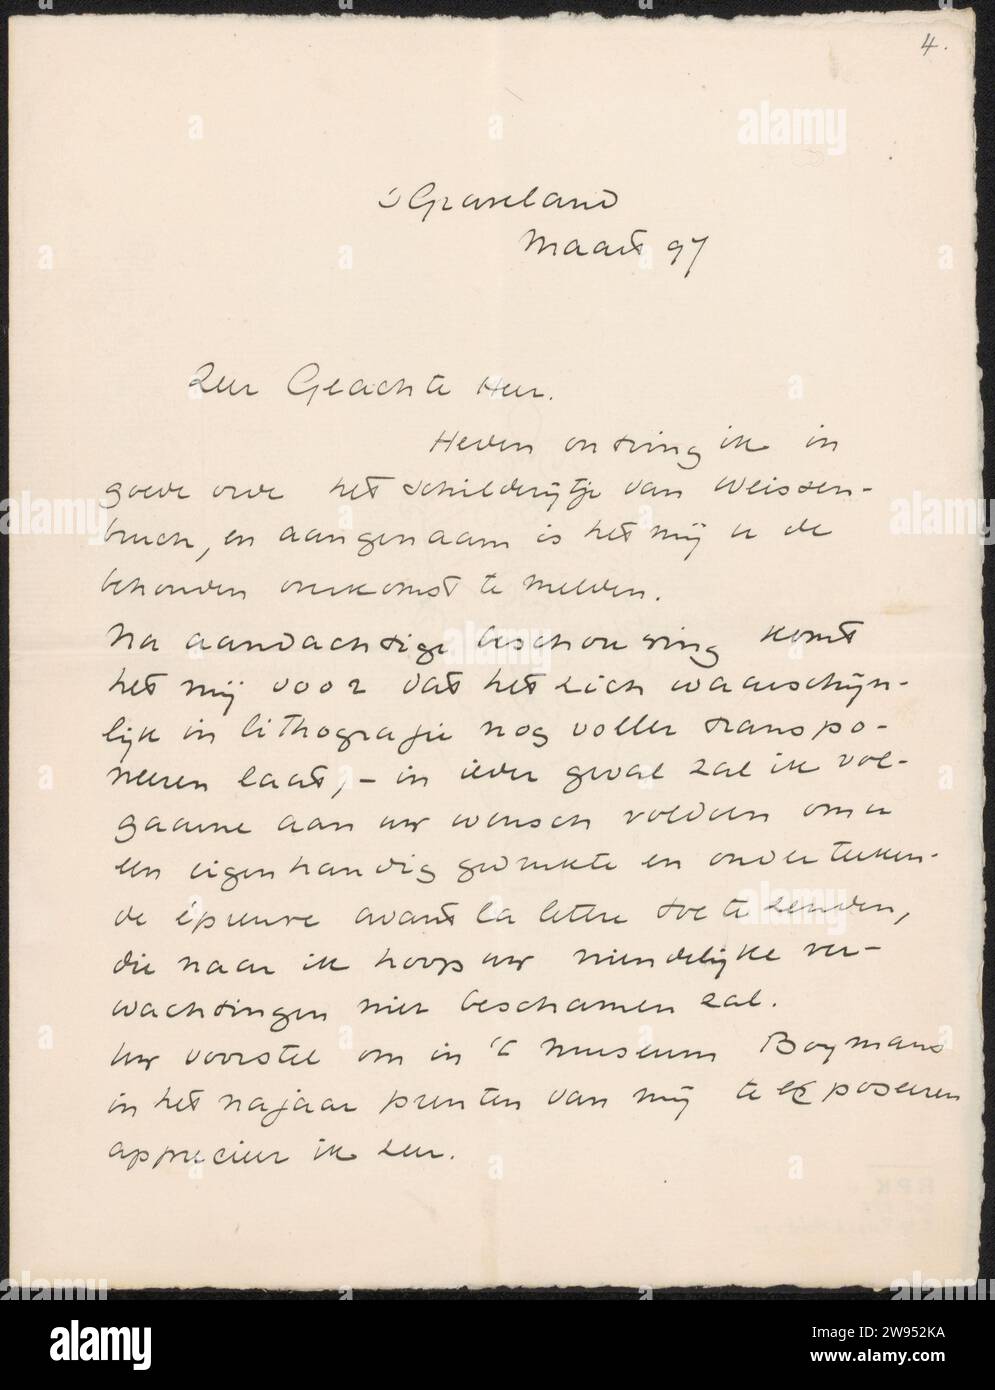 4.
's Graveland
Maart 97
Zeer Geachte Heer.
Heden ontving ik in
goede orde het schilderijtje van Weissen-
bruch, en aangenaam is het mij u de
behouden overkomst te melden.
Na aandachtige beschouwing komt
het mij voor dat het zich waarschijn-
lijk in lithografie nog voller transpo-
neeren laat, – in ieder geval zal ik vol-
gaarne aan uw wensch voldoen om u
een eigenhandig gedrukte en onderteeken-
de épreuve avant la lettre toe te zenden,
die naar ik hoop uw vriendelijke ver-
wachtingen niet beschamen zal.
Uw voorstel om in 't Museum Boymans
in het najaar prenten van mij te exposeeren
apprecieer ik zeer.
alamy
Image ID: 2W952KA
www.alamy.com